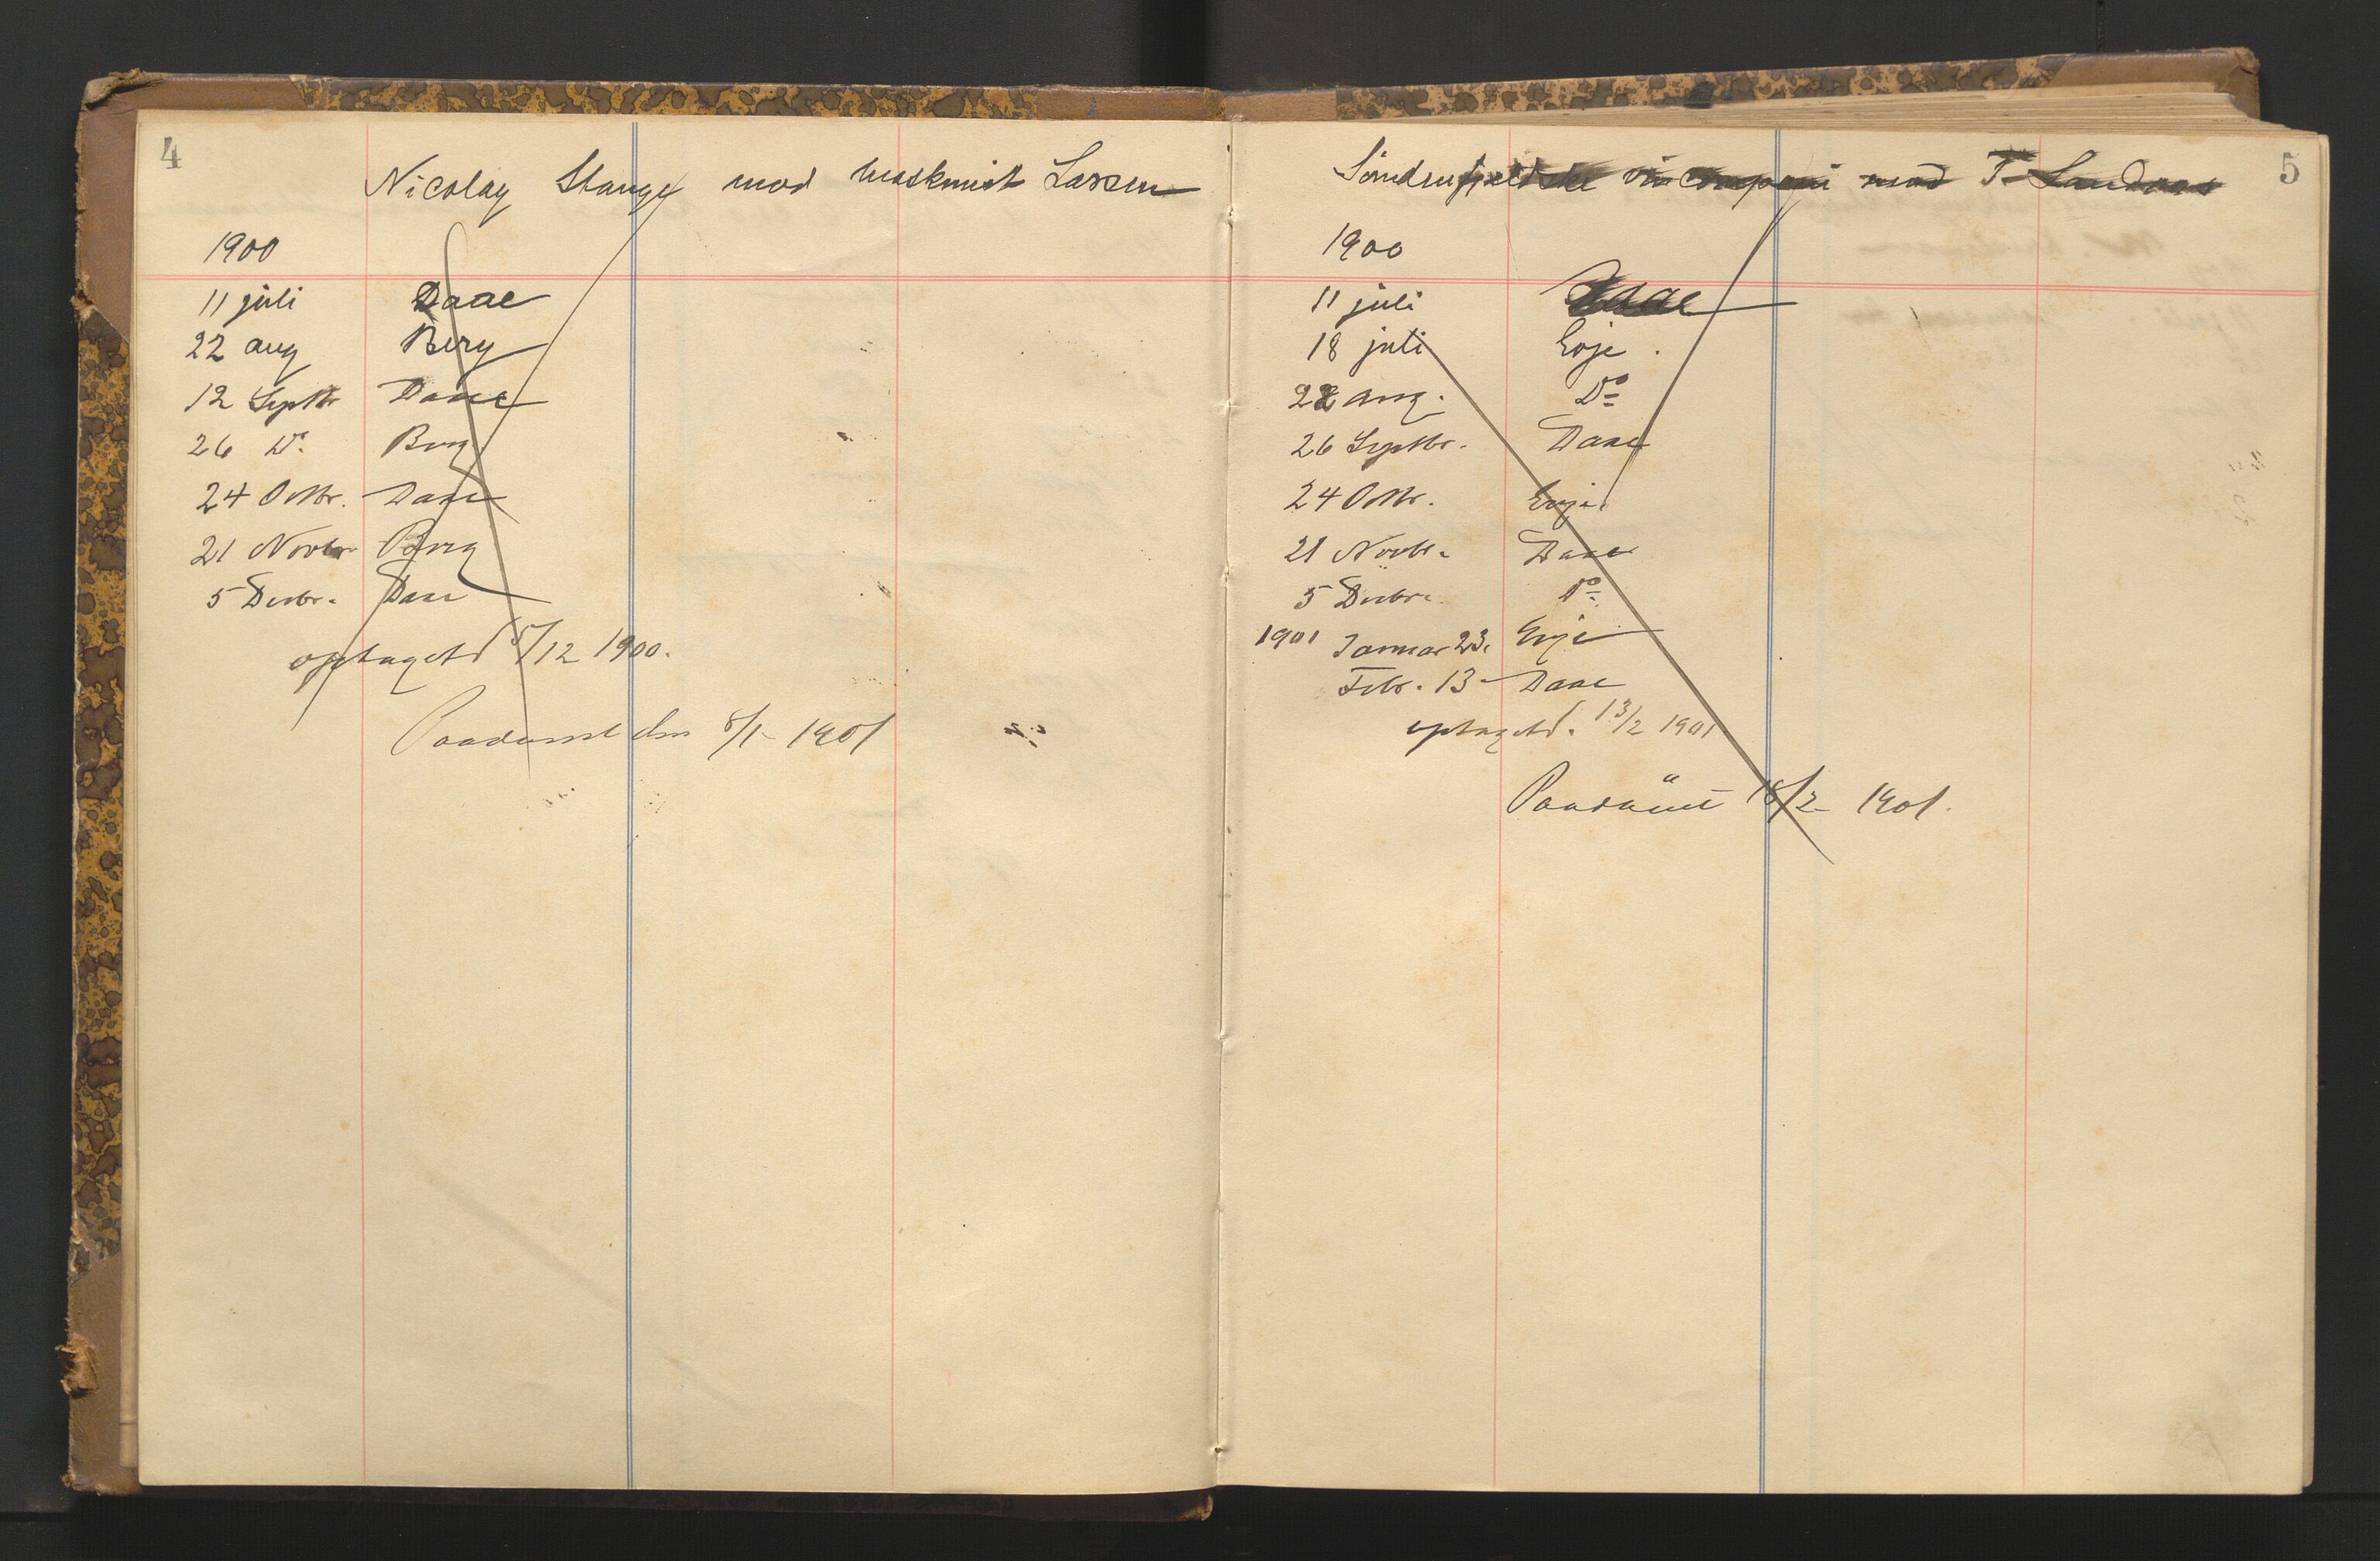 4
Nicolay Stange mod maskinist Larsen
1900
11 juli Daae
22 aug Berg
12 Septbr Daae
26 Do. Berg
24 Octbr. Daae
21 Novbr Berg
5 Decbr. Daae
optaget d 5/12 1900.
Paadømt den 8/1 - 1901
5
Søndenfjeldske vincompani mod T. Landaas
1900
11 juli Daae
18 juli Evje.
22 aug. Do
26 Septbr. Daae
24 Octbr. Evje.
21 Novbr. Daae
5 Decbr. Do
1901 Januar 23. Evje
Febr. 13 Daae
optaget d. 13/2 1901
Paadømt 18/2 - 1901.